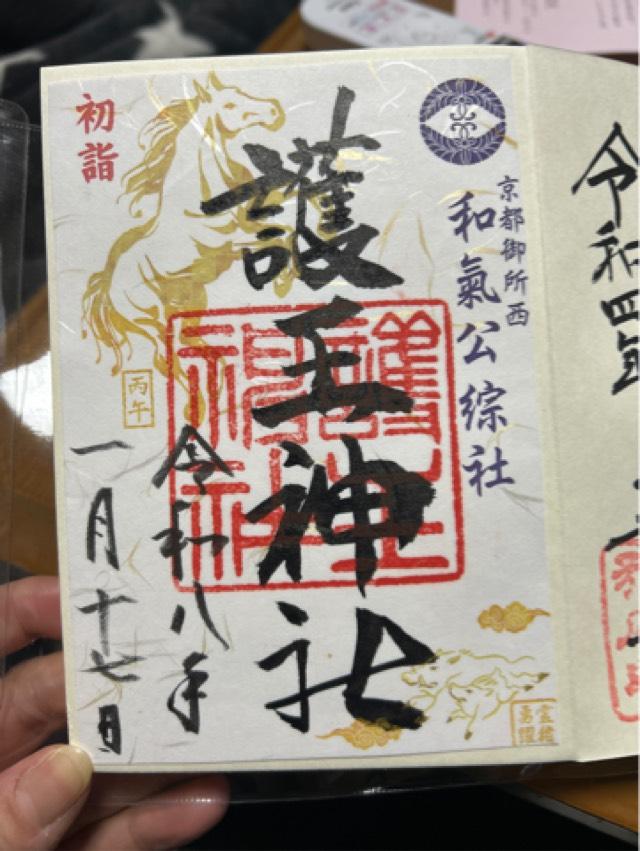 京都御所西
和氣公綜社
護王神社
初詣
丙午
令和八年
一月十七日
令和四年